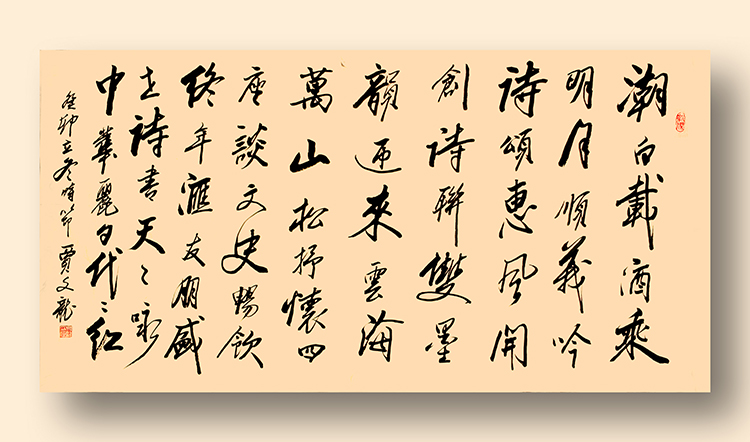 潮白載酒乘
明月順義吟
詩頌惠風開
創詩聯雙墨
韻迎來雲海
萬山松抒懷四
座談文史暢飲
終年匯友朋盛
世詩書天〻咏
中華麗句代〻紅
癸卯立冬時節賈文龍